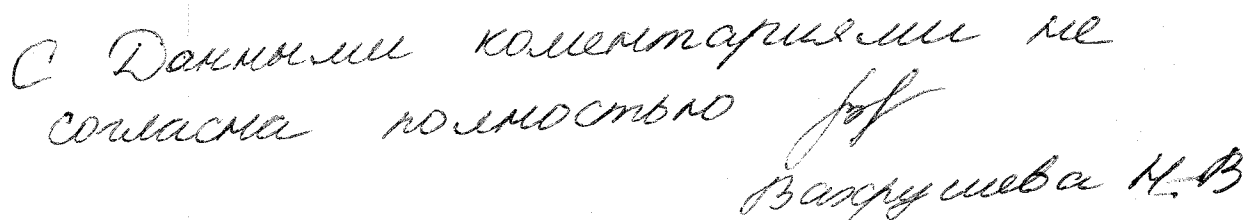 С Данными коментариями не
согласна полностью
Вахрушева Н.В